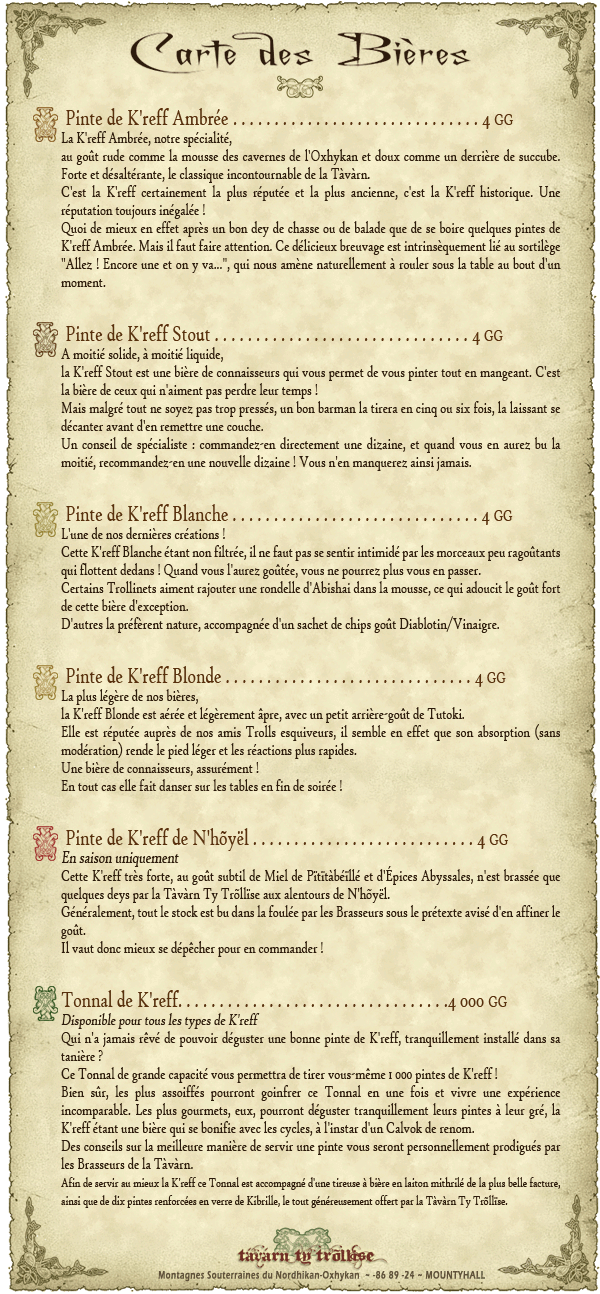 Carte des Bières
Pinte de K'reff Ambrée . . . . . . . . . . . . . . . . . . . . . . . . . . . . . . 4 GG
La K'reff Ambrée, notre spécialité,
au goût rude comme la mousse des cavernes de l'Oxhykan et doux comme un derrière de succube.
Forte et désaltérante, le classique incontournable de la Tàvàrn.
C'est la K'reff certainement la plus réputée et la plus ancienne, c'est la K'reff historique. Une
réputation toujours inégalée !
Quoi de mieux en effet après un bon dey de chasse ou de balade que de se boire quelques pintes de
K'reff Ambrée. Mais il faut faire attention. Ce délicieux breuvage est intrinsèquement lié au sortilège
"Allez ! Encore une et on y va...", qui nous amène naturellement à rouler sous la table au bout d'un
moment.
Pinte de K'reff Stout . . . . . . . . . . . . . . . . . . . . . . . . . . . . . . . 4 GG
A moitié solide, à moitié liquide,
la K'reff Stout est une bière de connaisseurs qui vous permet de vous pinter tout en mangeant. C'est
la bière de ceux qui n'aiment pas perdre leur temps !
Mais malgré tout ne soyez pas trop pressés, un bon barman la tirera en cinq ou six fois, la laissant se
décanter avant d'en remettre une couche.
Un conseil de spécialiste : commandez-en directement une dizaine, et quand vous en aurez bu la
moitié, recommandez-en une nouvelle dizaine ! Vous n'en manquerez ainsi jamais.
Pinte de K'reff Blanche . . . . . . . . . . . . . . . . . . . . . . . . . . . . . . 4 GG
L'une de nos dernières créations !
Cette K'reff Blanche étant non filtrée, il ne faut pas se sentir intimidé par les morceaux peu ragoûtants
qui flottent dedans ! Quand vous l'aurez goûtée, vous ne pourrez plus vous en passer.
Certains Trollinets aiment rajouter une rondelle d'Abishai dans la mousse, ce qui adoucit le goût fort
de cette bière d'exception.
D'autres la préfèrent nature, accompagnée d'un sachet de chips goût Diablotin/Vinaigre.
Pinte de K'reff Blonde . . . . . . . . . . . . . . . . . . . . . . . . . . . . . . 4 GG
La plus légère de nos bières,
la K'reff Blonde est aérée et légèrement âpre, avec un petit arrière-goût de Tutoki.
Elle est réputée auprès de nos amis Trolls esquiveurs, il semble en effet que son absorption (sans
modération) rende le pied léger et les réactions plus rapides.
Une bière de connaisseurs, assurément !
En tout cas elle fait danser sur les tables en fin de soirée !
Pinte de K'reff de N'hõyël . . . . . . . . . . . . . . . . . . . . . . . . . . . 4 GG
En saison uniquement
Cette K'reff très forte, au goût subtil de Miel de Pïtïtàbéïllé et d'Épices Abyssales, n'est brassée que
quelques deys par la Tàvàrn Ty Trõllïse aux alentours de N'hõyël.
Généralement, tout le stock est bu dans la foulée par les Brasseurs sous le prétexte avisé d'en affiner le
goût.
Il vaut donc mieux se dépêcher pour en commander !
Tonnal de K'reff. . . . . . . . . . . . . . . . . . . . . . . . . . . . . . . . .4 000 GG
Disponible pour tous les types de K'reff
Qui n'a jamais rêvé de pouvoir déguster une bonne pinte de K'reff, tranquillement installé dans sa
tanière ?
Ce Tonnal de grande capacité vous permettra de tirer vous-même 1 000 pintes de K'reff !
Bien sûr, les plus assoiffés pourront goinfrer ce Tonnal en une fois et vivre une expérience
incomparable. Les plus gourmets, eux, pourront déguster tranquillement leurs pintes à leur gré, la
K'reff étant une bière qui se bonifie avec les cycles, à l'instar d'un Calvok de renom.
Des conseils sur la meilleure manière de servir une pinte vous seront personnellement prodigués par
les Brasseurs de la Tàvàrn.
Afin de servir au mieux la K'reff ce Tonnal est accompagné d'une tireuse à bière en laiton mithrilé de la plus belle facture,
ainsi que de dix pintes renforcées en verre de Kibrille, le tout généreusement offert par la Tàvàrn Ty Trõllïse.
tàvàrn ty trõllïse
Montagnes Souterraines du Nordhikan-Oxhykan ~ -86 89 -24 ~ MOUNTYHALL